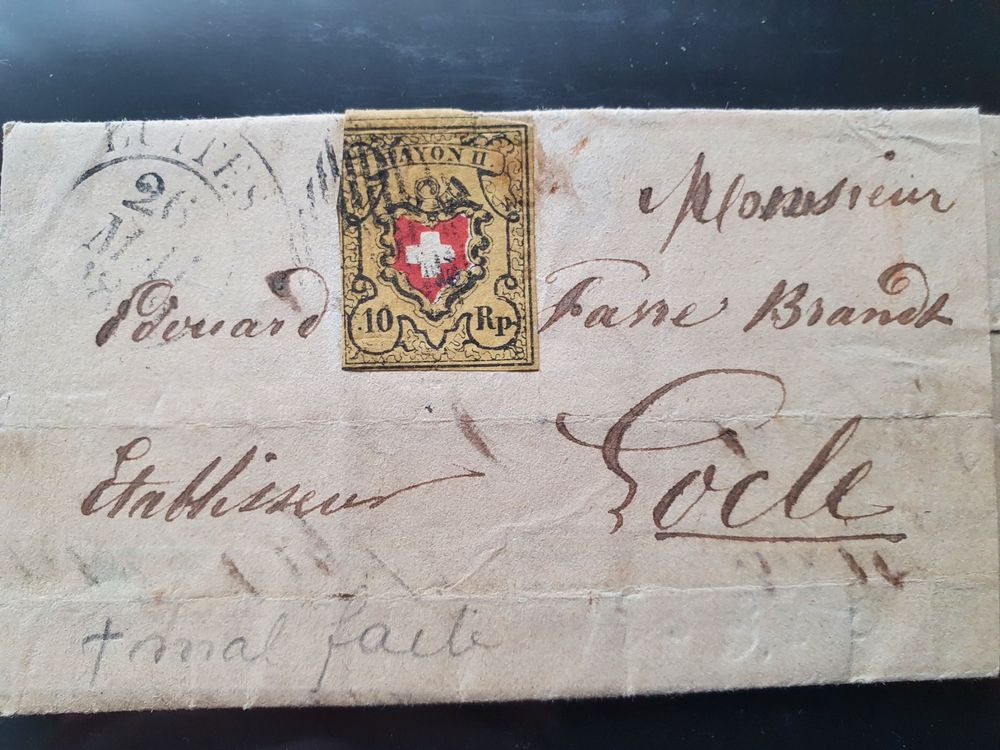 26
RAYON II.
10 Rp
Monsieur
Edouard Favre Brandt
Etablisseur Locle
+ mal facte